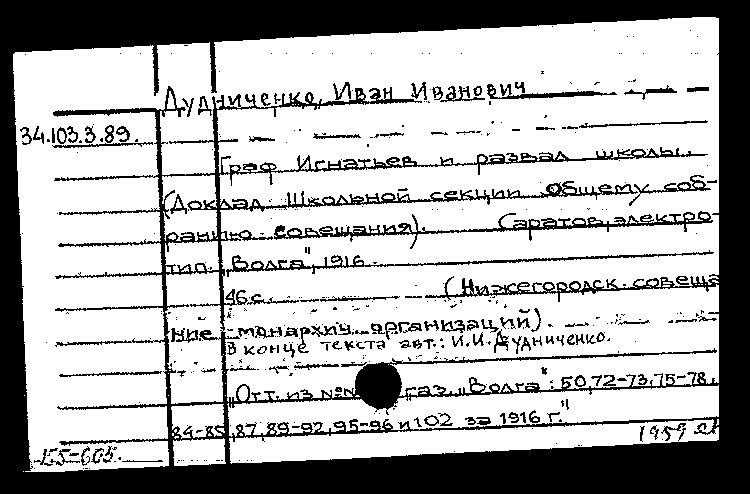 Дудниченко, Иван Иванович
34.103.3.89.
Граф Игнатьев и развал школы.
(Доклад Школьной секции Общему соб-
ранию совещания). Саратов, электро-
тип. „Волга", 1916.
46 с. (Нижегородск. совеща
ние монархич. организаций).
В конце текста авт.: И.И. Дудниченко.
„Отт. из №№ газ. „Волга": 50,72-73,75-78,
84-85,87,89-92,95-96 и 102 за 1916 г."
Е5-605. 1959